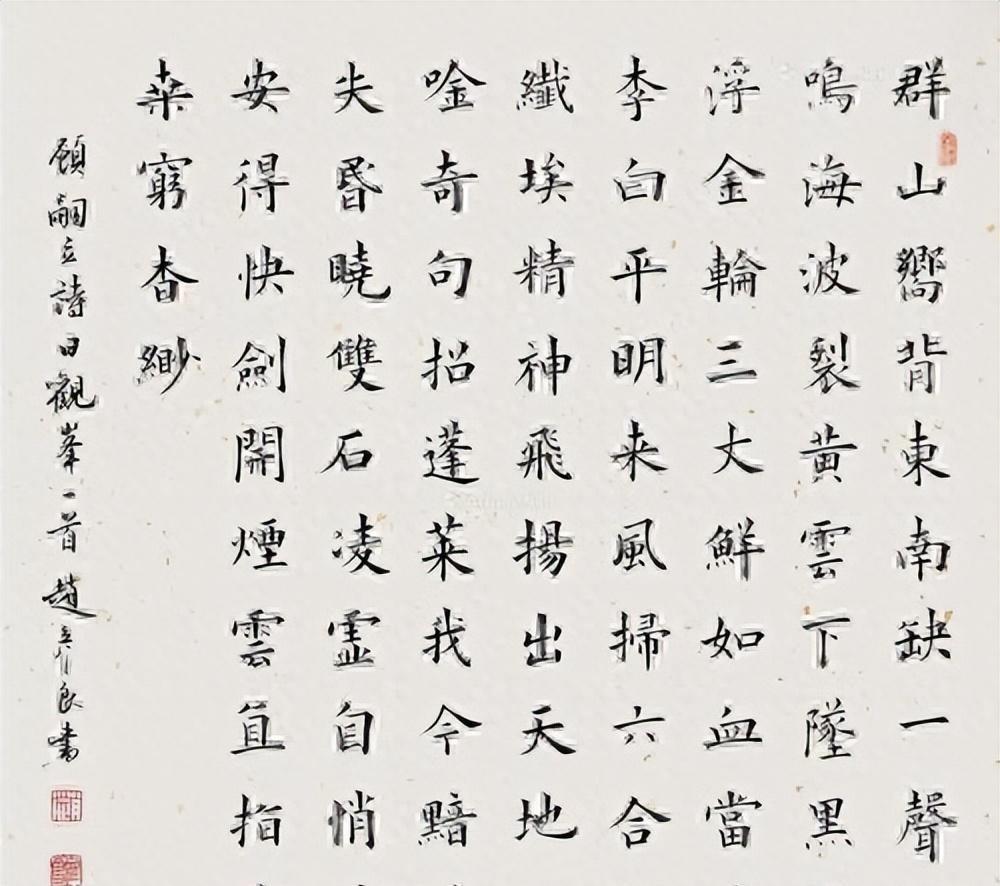 群山嚮背東南缺一聲
鳴海波裂黃雲下墜黑
浮金輪三丈鮮如血當
李白平明来風掃六合
纖埃精神飛揚出天地
唫奇句招蓬萊我今黯
失昏曉雙石凌虛自悄
安得快劍開煙雲直指
桒窮杳緲
顧嗣立詩日觀峯一首 趙立良書